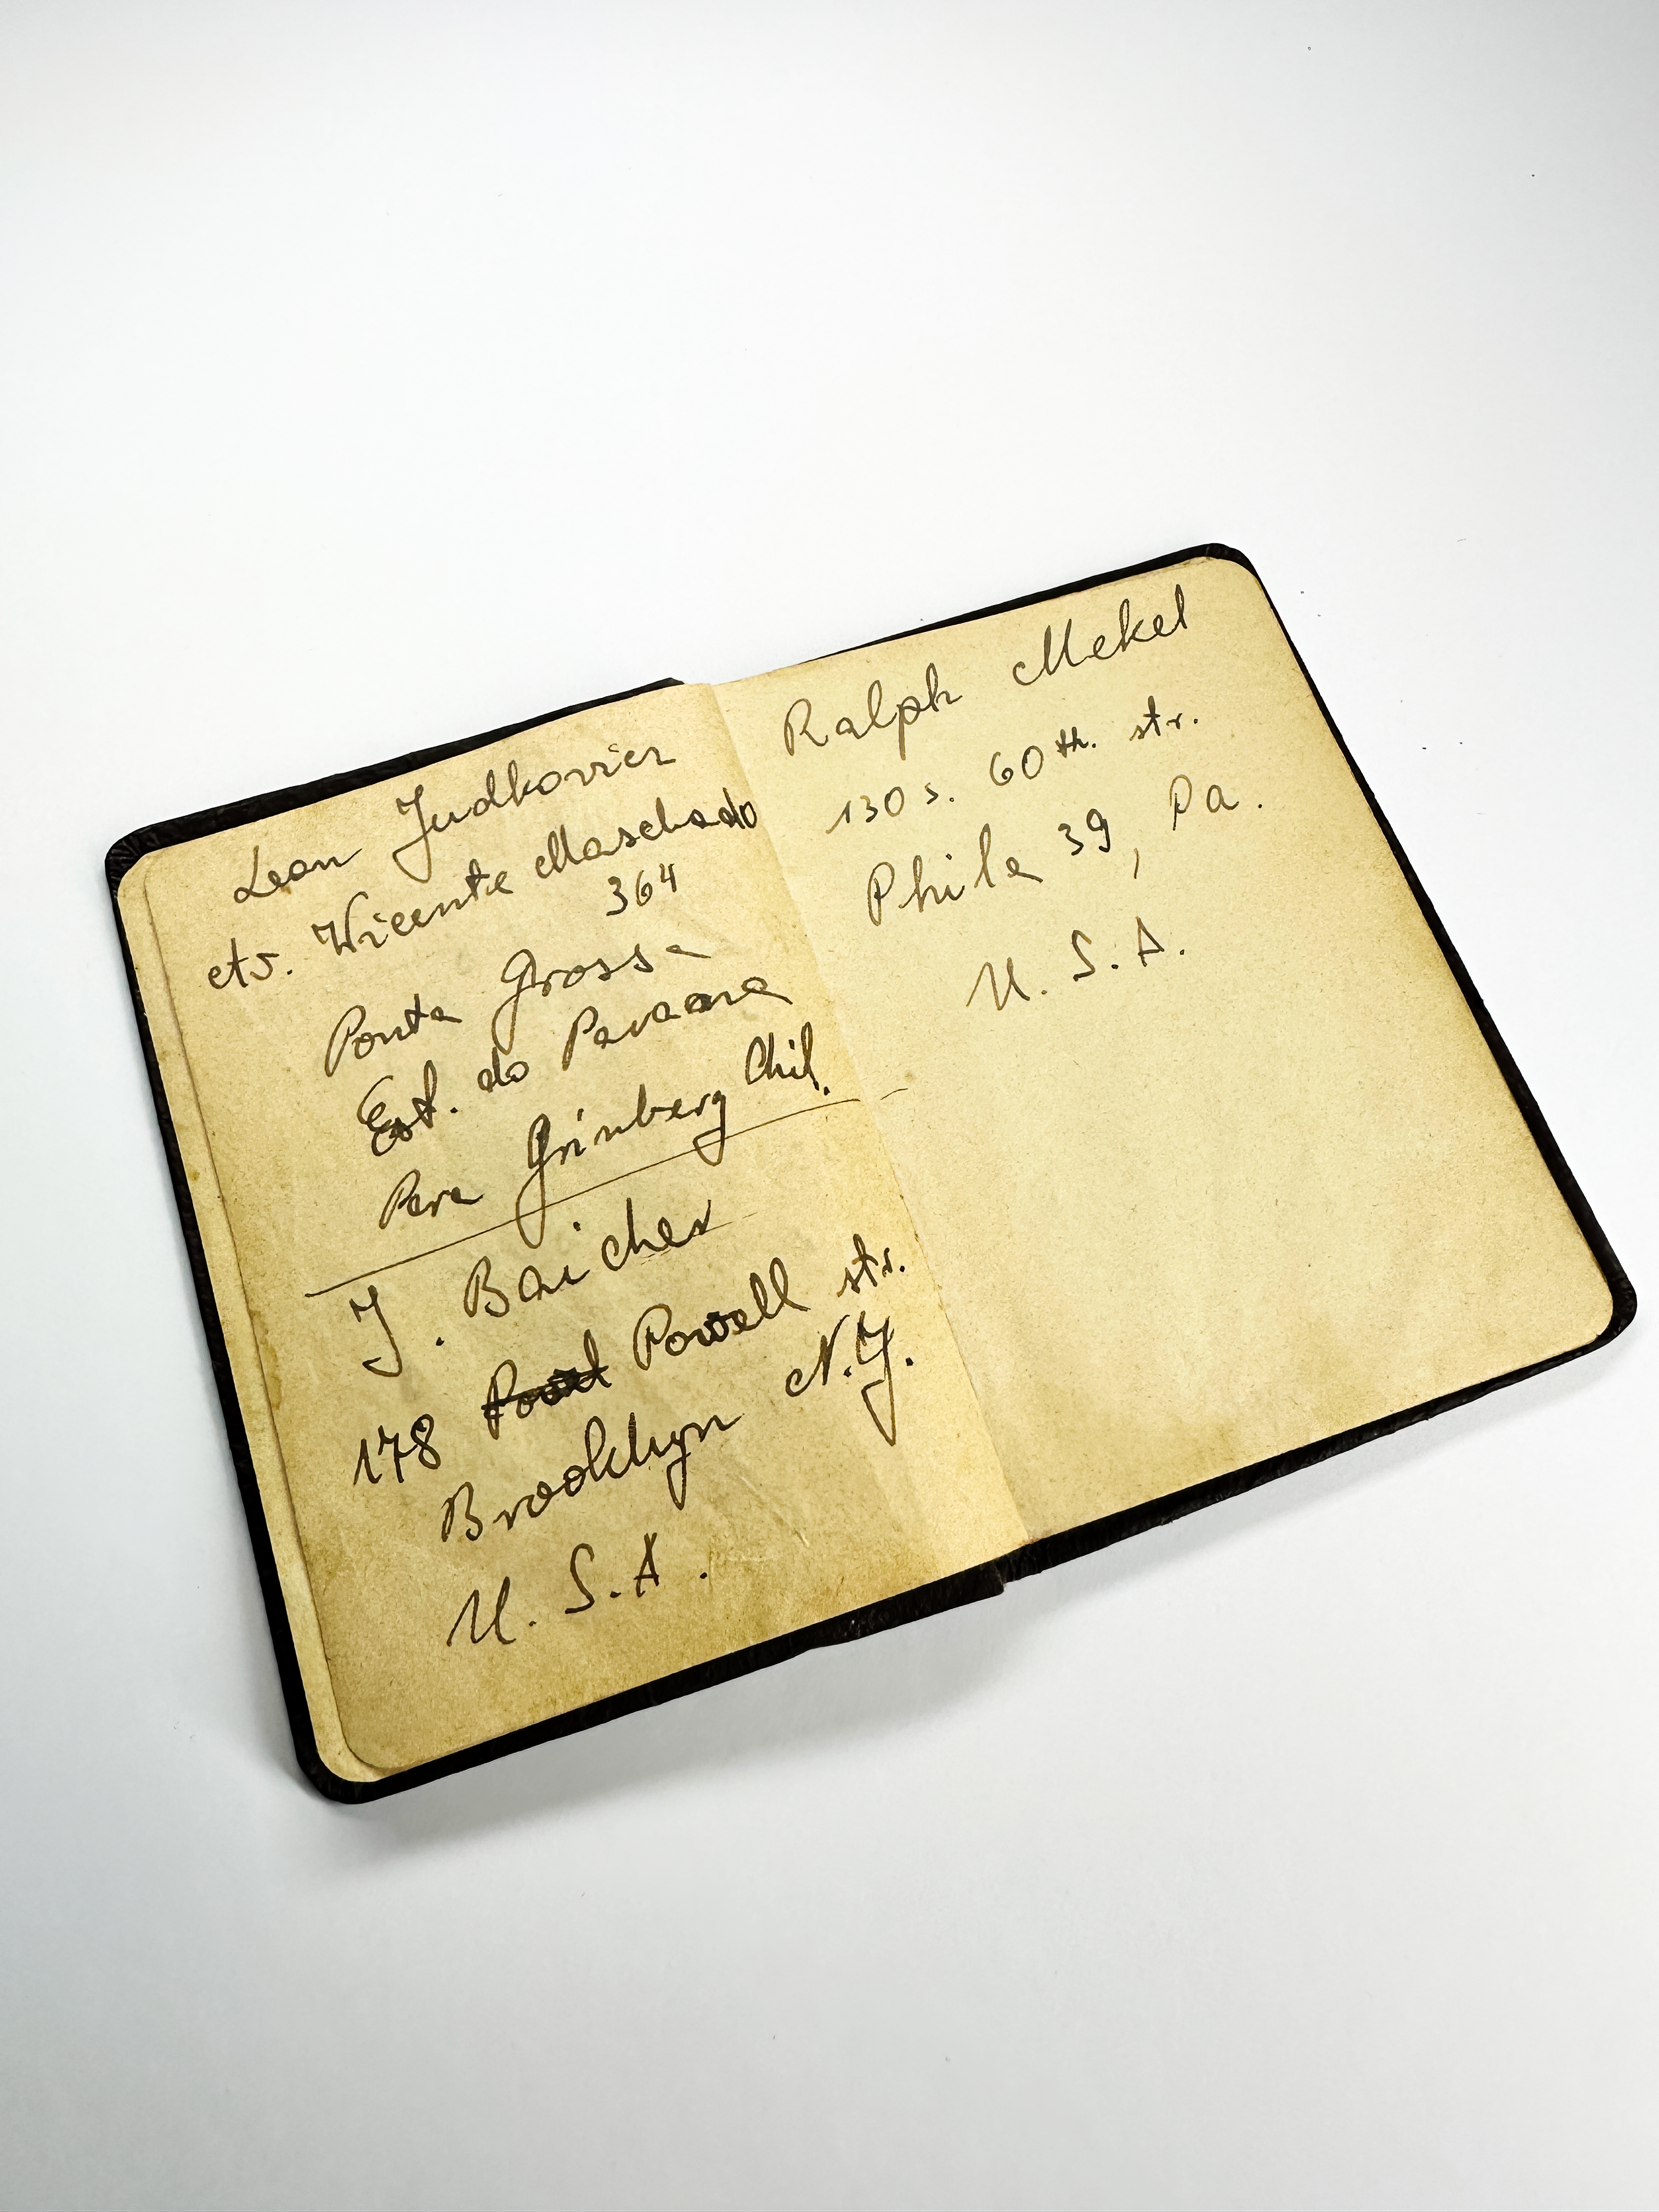 Leon Judkovier
etv. Wicente Maschado
364
Ponta Grossa
Est. do Paraana
Pera Grinberg Chil.
J. Baicher
178 Powell str.
Brooklyn N.Y.
U. S. A.
Ralph Mekel
130 s. 60th. str.
Phila 39, Pa.
U. S. A.